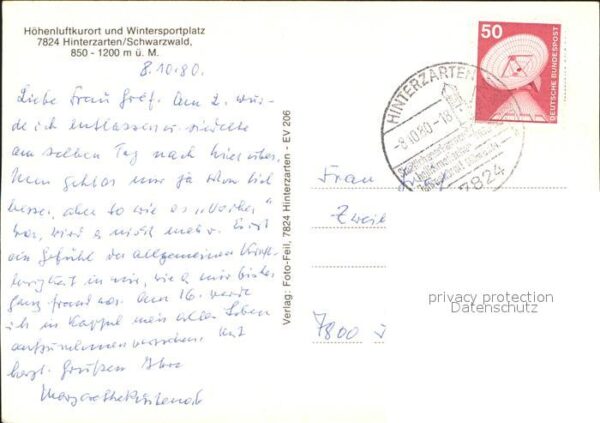 Höhenluftkurort und Wintersportplatz
7824 Hinterzarten/Schwarzwald,
850 - 1200 m ü. M.
8.10.80.
Liebe Frau Gräf. Am 2. wur-
de ich entlassen u. siedelte
am selben Tag nach hier über.
Nun geht es mir ja schon viel
besser, aber so wie es "vorher"
war, wird es nicht mehr. Es ist
ein Gefühl der allgemeinen
in mir, wie es mir bisher
ganz fremd war. Am 16. werde
ich in Kappel mein altes Leben
aufzunehmen versuchen. Mit
herzl. Grüßen Ihre
Verlag: Foto-Feil, 7824 Hinterzarten - EV 206
HINTERZARTEN
-8.10.80-18
7824
50
DEUTSCHE BUNDESPOST
Frau
7800
privacy protection
Datenschutz